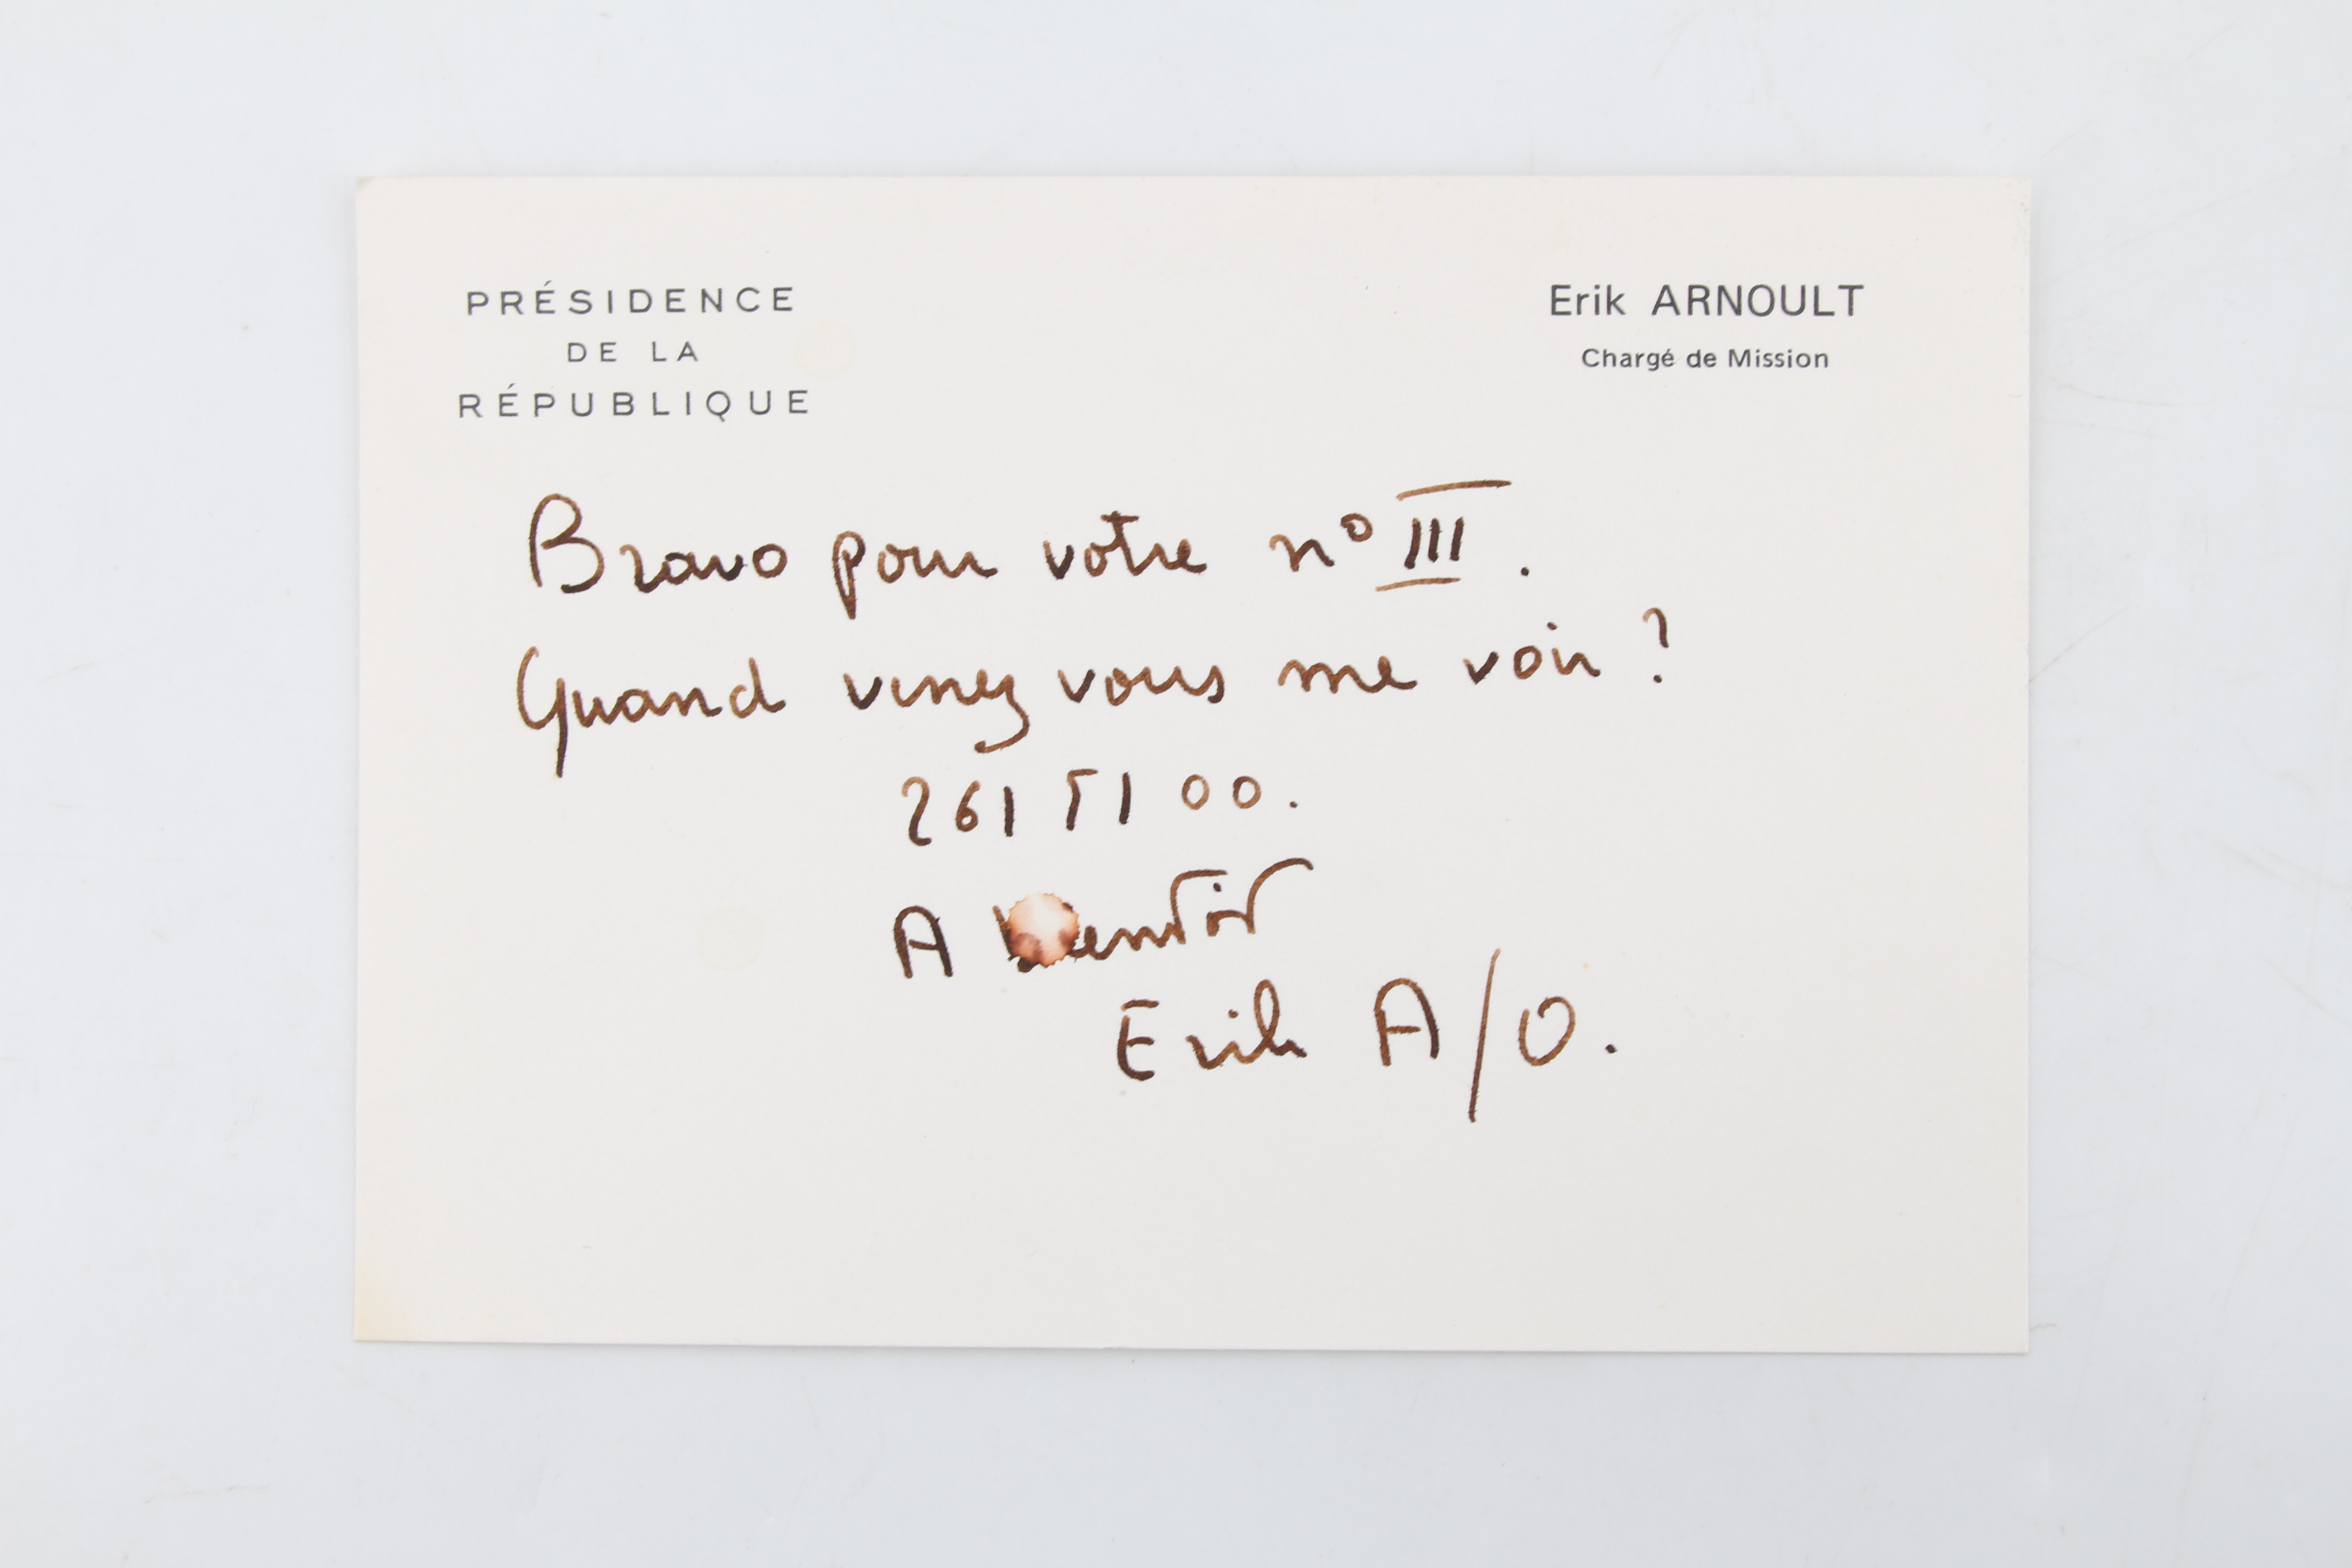 PRÉSIDENCE
DE LA
RÉPUBLIQUE
Erik ARNOULT
Chargé de Mission
Bravo pour votre nº III.
Quand venez vous me voir ?
261 51 00.
A bientôt
Erik A/O.